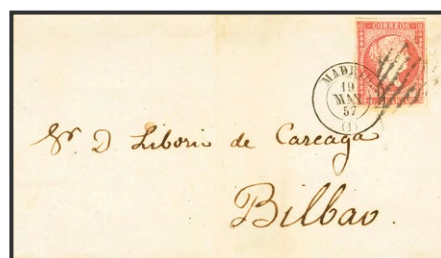 CORREOS
MADRID
19
MAY
57
(1)
Sr. D. Liborio de Careaga
Bilbao.